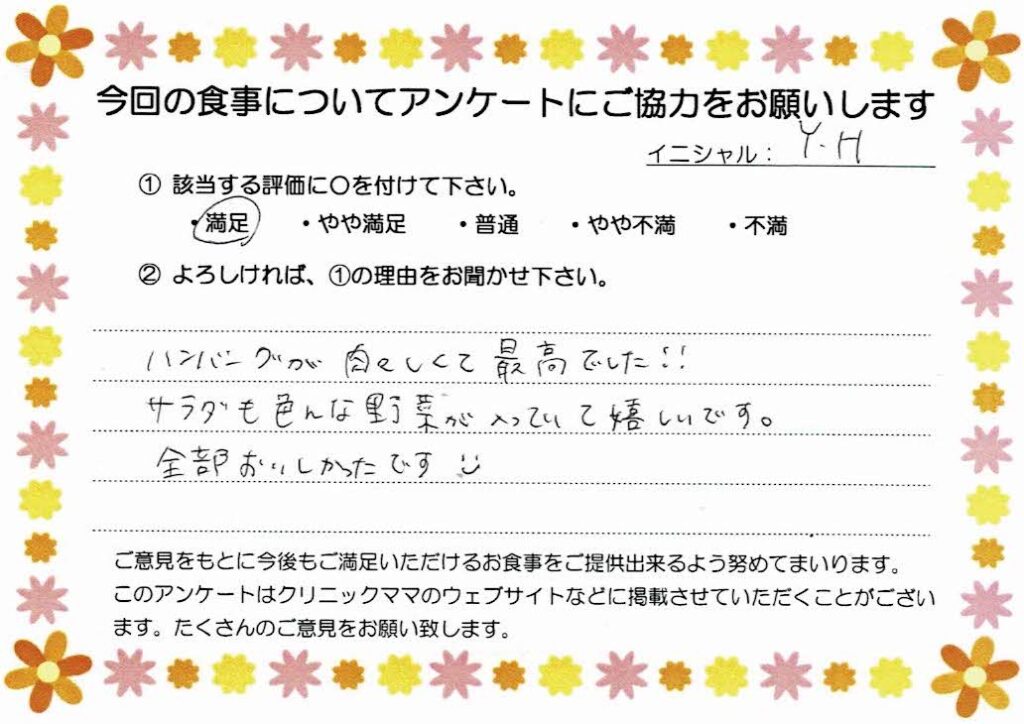 今回の食事についてアンケートにご協力をお願いします
イニシャル： Y.H
① 該当する評価に〇を付けて下さい。
・満足 ・やや満足 ・普通 ・やや不満 ・不満
② よろしければ、①の理由をお聞かせ下さい。
ハンバングが 肉々しくて 最高でした!!
サラダも色んな野菜が入っていて嬉しいです。
全部おいしかったです
ご意見をもとに今後もご満足いただけるお食事をご提供出来るよう努めてまいります。
このアンケートはクリニックママのウェブサイトなどに掲載させていただくことがござい
ます。たくさんのご意見をお願い致します。